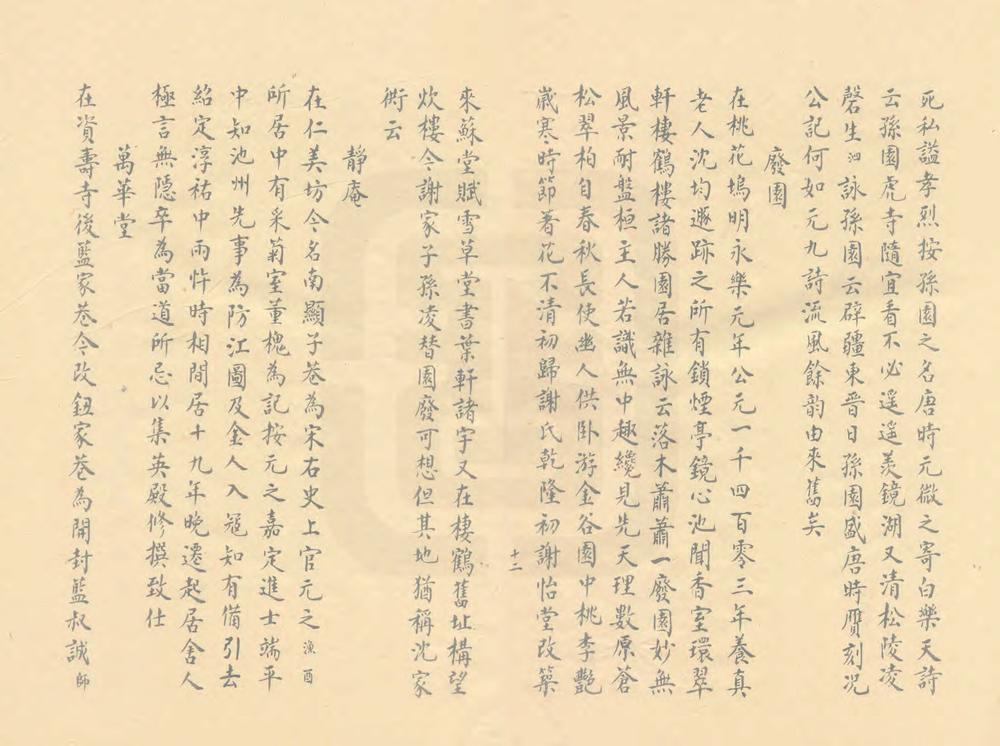 死私謚孝烈按孫園之名唐時元微之寄白樂天詩
云孫園虎寺隨宜看不必遥遥羡鏡湖又清松陵凌
磬生泗詠孫園云辟疆東晋日孫園盛唐時贋刻况
公記何如元九詩流風餘韵由來舊矣
廢園
在桃花塢明永樂元年公元一千四百零三年養真
老人沈均遯跡之所有鎖煙亭鏡心池聞香室環翠
軒棲鶴樓諸勝園居雜詠云落木蕭蕭一廢園妙無
風景耐盤桓主人若識無中趣纔見先天理數原蒼
松翠柏自春秋長使幽人供卧游金谷園中桃李艷
嵗寒時節著花不清初歸謝氏乾隆初謝怡堂改築
十二
來蘇堂賦雪草堂書葉軒諸宇又在棲鶴舊址構望
炊樓今謝家子孫凌替園廢可想但其地猶稱沈家
衖云
靜庵
在仁美坊今名南顯子巷為宋右史上官元之渙酉
所居中有采菊室董槐為記按元之嘉定進士端平
中知池州先事為防江圖及金人入寇知有備引去
紹定淳祐中兩忤時相閒居十九年晚遷起居舍人
極言無隱卒為當道所忌以集英殿修撰致仕
萬華堂
在資壽寺後藍家巷今改鈕家巷為開封藍叔誠師